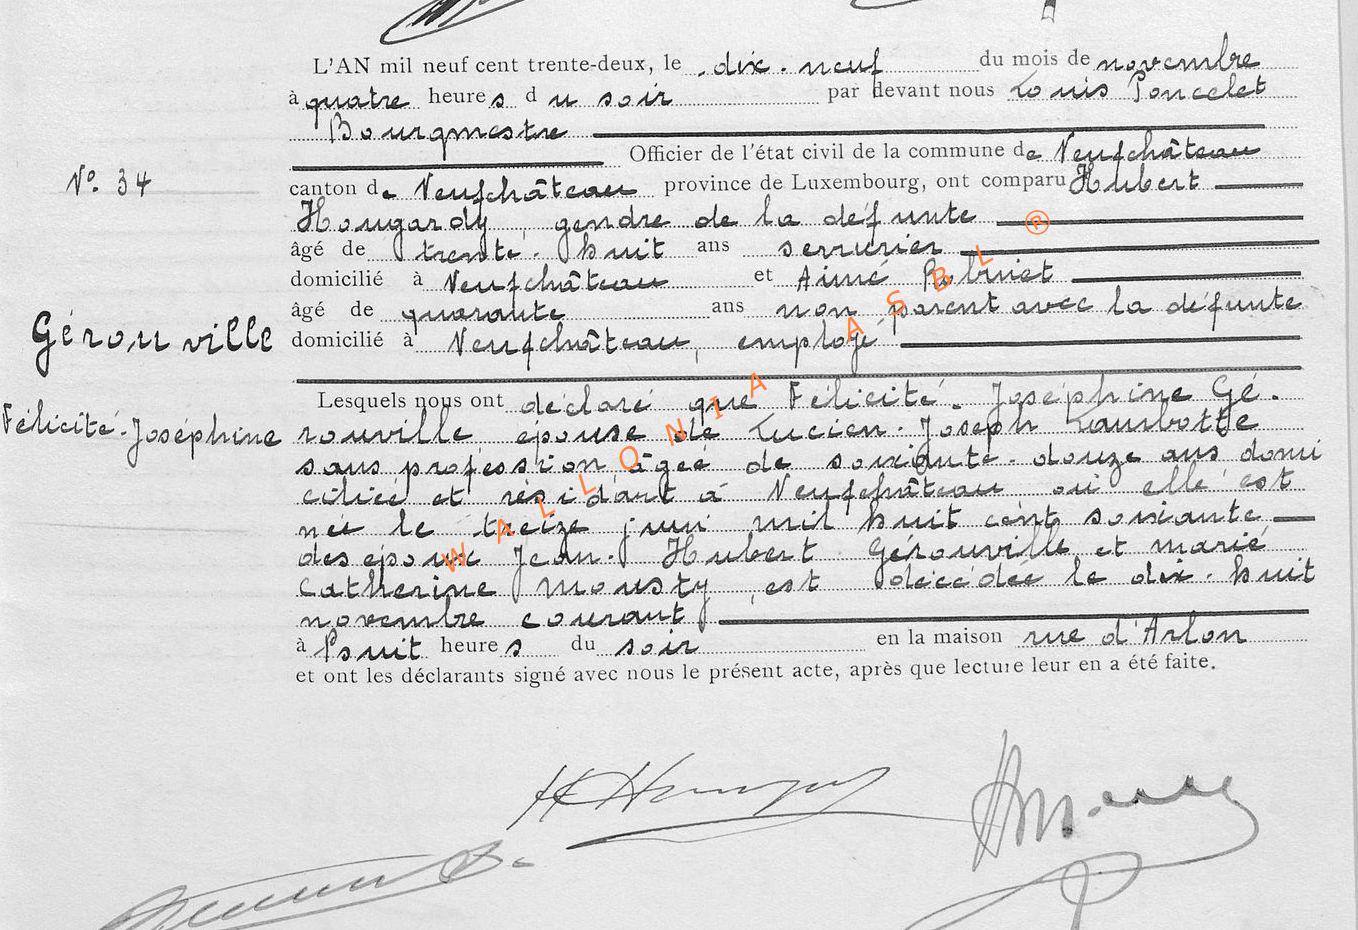 L'AN mil neuf cent trente-deux, le dix-neuf du mois de novembre
à quatre heures du soir par devant nous Louis Poncelet
Bourgmestre
Officier de l'état civil de la commune de Neufchâteau
N° 34
canton de Neufchâteau province de Luxembourg, ont comparu Hubert
Hougardy, gendre de la défunte
âgé de trente-huit ans serrurier
domicilié à Neufchâteau et Aimé
âgé de quarante ans non parent avec la défunte
Gérouville
domicilié à Neufchâteau, employé
Lesquels nous ont déclaré que Félicité-Joséphine Gé-
Félicité-Joséphine
rouville épouse de Lucien-Joseph Lambotte
sans profession âgée de soixante-douze ans domi
ciliée et résidant à Neufchâteau où elle est
née le treize juin mil huit cent soixante
des époux Jean-Hubert Gérouville et Marie
Catherine Mousty, est décédée le dix-huit
novembre courant
à huit heures du soir en la maison rue d'Arlon
et ont les déclarants signé avec nous le présent acte, après que lecture leur en a été faite.
WALLONIA ASBL ®